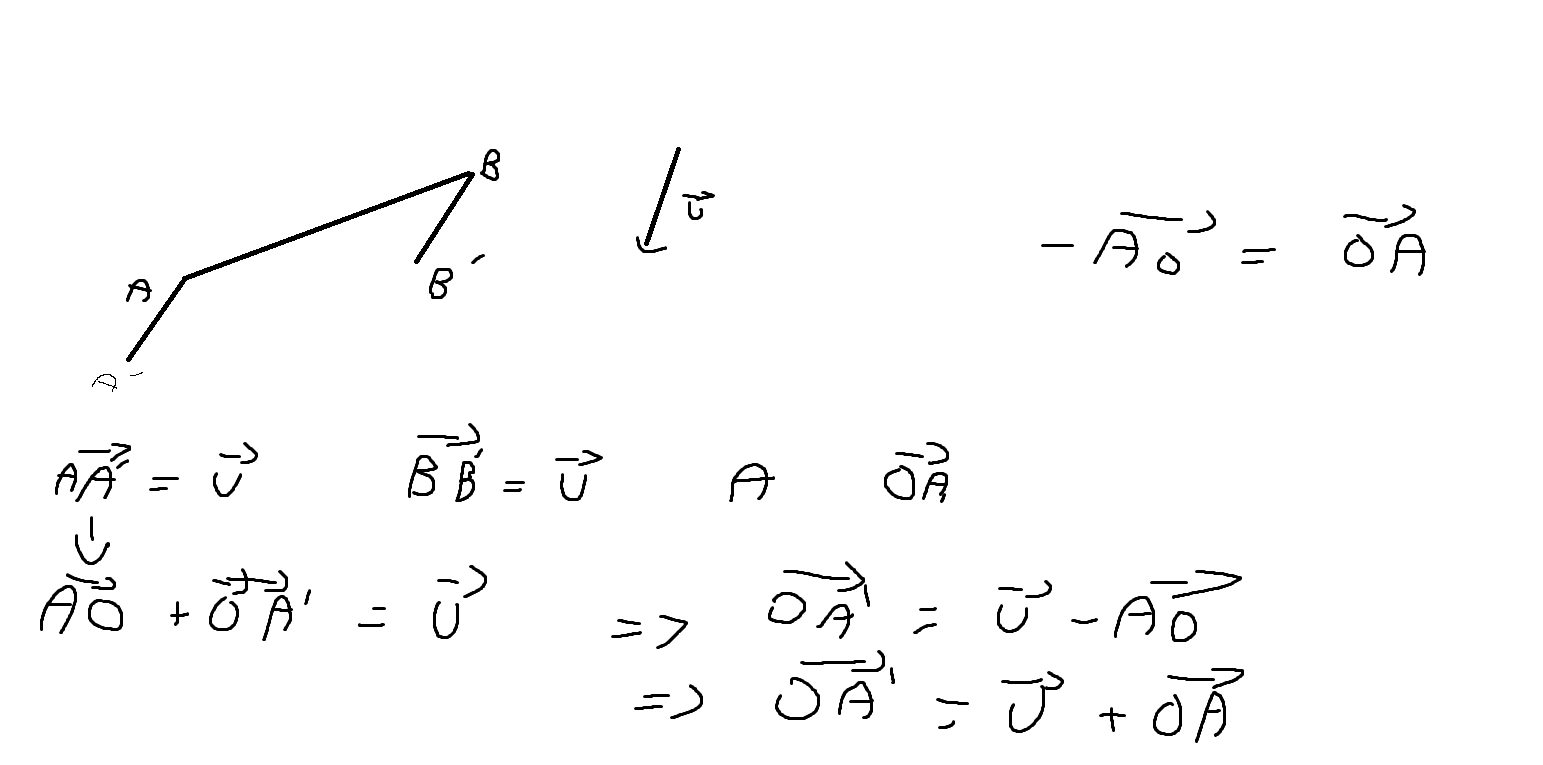 B
A
B′
A′
u⃗
-A⃗O⃗ = O⃗A⃗
A⃗A⃗′ = u⃗    B⃗B⃗′ = u⃗    A    O⃗A⃗
↓
A⃗O⃗ + O⃗A⃗′ = u⃗ => O⃗A⃗′ = u⃗ - A⃗O⃗
=> O⃗A⃗′ = u⃗ + O⃗A⃗